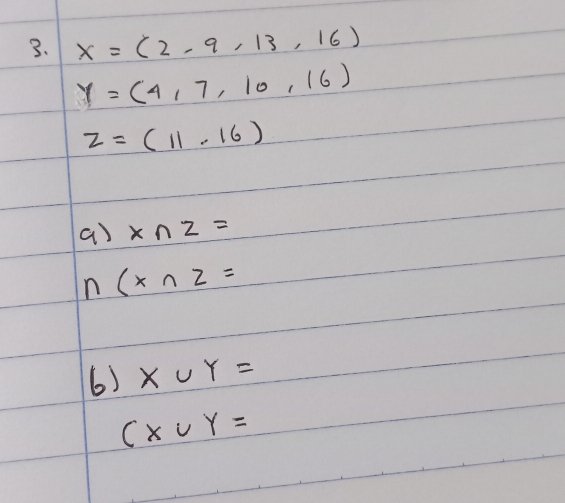 3. X = (2, 9, 13, 16)
Y = (4, 7, 10, 16)
Z = (11, 16)
a) X ∩ Z =
n (X ∩ Z =
b) X ∪ Y =
(X ∪ Y =